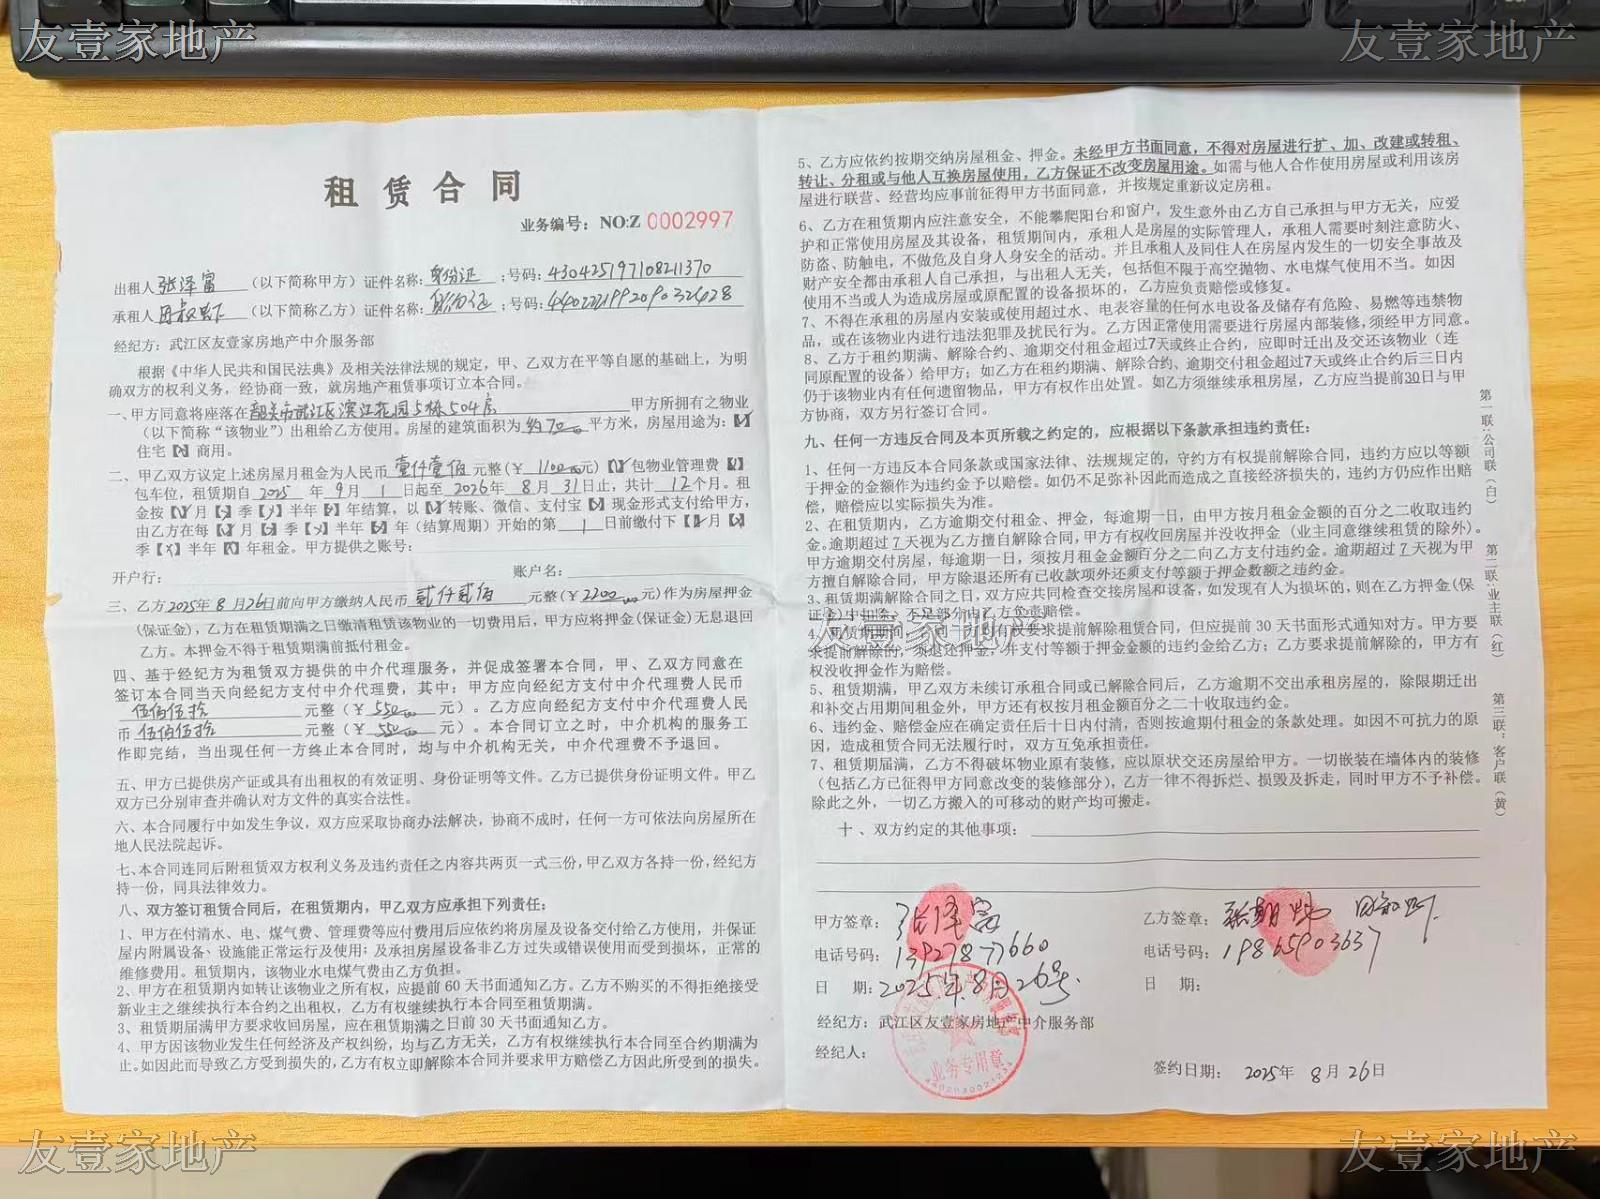 友壹家地产
友壹家地产
租赁合同
业务编号：NO:Z 0002997
出租人 张泽富 （以下简称甲方）证件名称：身份证 ；号码：430425197108211370
承租人 （以下简称乙方）证件名称：身份证 ；号码：
经纪方：武江区友壹家房地产中介服务部
根据《中华人民共和国民法典》及相关法律法规的规定，甲、乙双方在平等自愿的基础上，为明
确双方的权利义务，经协商一致，就房地产租赁事项订立本合同。
一、甲方同意将座落在 韶关市武江区滨江花园5栋504房 甲方所拥有之物业
（以下简称“该物业”）出租给乙方使用。房屋的建筑面积为 约70 平方米，房屋用途为：【√】
住宅【×】商用。
二、甲乙双方议定上述房屋月租金为人民币 壹仟壹佰 元整（¥ 1100 元）【】包物业管理费【】
包车位，租赁期自 2025 年 9 月 1 日起至 2026 年 8 月 31 日止，共计 12 个月。租
金按【√】月【】季【】半年【】年结算，以【√】转账、微信、支付宝【】现金形式支付给甲方，
由乙方在每【√】月【】季【】半年【】年（结算周期）开始的第 1 日前缴付下【】月【】
季【×】半年【】年租金。甲方提供之账号：
开户行： 账户名：
三、乙方 2025年 8 月 26 日前向甲方缴纳人民币 贰仟贰佰 元整（¥ 2200 元）作为房屋押金
（保证金），乙方在租赁期满之日缴清租赁该物业的一切费用后，甲方应将押金（保证金）无息退回
乙方。本押金不得于租赁期满前抵付租金。
四、基于经纪方为租赁双方提供的中介代理服务，并促成签署本合同，甲、乙双方同意在
签订本合同当天向经纪方支付中介代理费，其中：甲方应向经纪方支付中介代理费人民币
伍佰伍拾 元整（¥ 550 元）。乙方应向经纪方支付中介代理费人民
币 伍佰伍拾 元整（¥ 550 元）。本合同订立之时，中介机构的服务工
作即完结，当出现任何一方终止本合同时，均与中介机构无关，中介代理费不予退回。
五、甲方已提供房产证或具有出租权的有效证明、身份证明等文件。乙方已提供身份证明文件。甲乙
双方已分别审查并确认对方文件的真实合法性。
六、本合同履行中如发生争议，双方应采取协商办法解决，协商不成时，任何一方可依法向房屋所在
地人民法院起诉。
七、本合同连同后附租赁双方权利义务及违约责任之内容共两页一式三份，甲乙双方各持一份，经纪方
持一份，同具法律效力。
八、双方签订租赁合同后，在租赁期内，甲乙双方应承担下列责任：
1、甲方在付清水、电、煤气费、管理费等应付费用后应依约将房屋及设备交付给乙方使用，并保证
屋内附属设备、设施能正常运行及使用；及承担房屋设备非乙方过失或错误使用而受到损坏，正常的
维修费用。租赁期内，该物业水电煤气费由乙方负担。
2、甲方在租赁期内如转让该物业之所有权，应提前60天书面通知乙方。乙方不购买的不得拒绝接受
新业主之继续执行本合约之出租权，乙方有权继续执行本合同至租赁期满。
3、租赁期届满甲方要求收回房屋，应在租赁期满之日前30天书面通知乙方。
4、甲方因该物业发生任何经济及产权纠纷，均与乙方无关，乙方有权继续执行本合同至合约期满为
止。如因此而导致乙方受到损失的，乙方有权立即解除本合同并要求甲方赔偿乙方因此所受到的损失。
5、乙方应依约按期交纳房屋租金、押金。未经甲方书面同意，不得对房屋进行扩、加、改建或转租、
转让、分租或与他人互换房屋使用，乙方保证不改变房屋用途。如需与他人合作使用房屋或利用该房
屋进行联营、经营均应事前征得甲方书面同意，并按规定重新议定房租。
6、乙方在租赁期内应注意安全，不能攀爬阳台和窗户，发生意外由乙方自己承担与甲方无关，应爱
护和正常使用房屋及其设备，租赁期间内，承租人是房屋的实际管理人，承租人需要时刻注意防火、
防盗、防触电，不做危及自身人身安全的活动。并且承租人及同住人在房屋内发生的一切安全事故及
财产安全都由承租人自己承担，与出租人无关，包括但不限于高空抛物、水电煤气使用不当。如因
使用不当或人为造成房屋或原配置的设备损坏的，乙方应负责赔偿或修复。
7、不得在承租的房屋内安装或使用超过水、电表容量的任何水电设备及储存有危险、易燃等违禁物
品，或在该物业内进行违法犯罪及扰民行为。乙方因正常使用需要进行房屋内部装修，须经甲方同意。
8、乙方于租约期满、解除合约、逾期交付租金超过7天或终止合约，应即时迁出及交还该物业（连
同原配置的设备）给甲方；如乙方在租约期满、解除合约、逾期交付租金超过7天或终止合约后三日内
仍于该物业内有任何遗留物品，甲方有权作出处置。如乙方须继续承租房屋，乙方应当提前30日与甲
方协商，双方另行签订合同。
九、任何一方违反合同及本页所载之约定的，应根据以下条款承担违约责任：
1、任何一方违反本合同条款或国家法律、法规规定的，守约方有权提前解除合同，违约方应以等额
于押金的金额作为违约金予以赔偿。如仍不足弥补因此而造成之直接经济损失的，违约方仍应作出赔
偿，赔偿应以实际损失为准。
2、在租赁期内，乙方逾期交付租金、押金，每逾期一日，由甲方按月租金金额的百分之二收取违约
金。逾期超过7天视为乙方擅自解除合同，甲方有权收回房屋并没收押金（业主同意继续租赁的除外）。
甲方逾期交付房屋，每逾期一日，须按月租金金额百分之二向乙方支付违约金。逾期超过7天视为甲
方擅自解除合同，甲方除退还所有已收款项外还须支付等额于押金数额之违约金。
3、租赁期满解除合同之日，双方应共同检查交接房屋和设备，如发现有人为损坏的，则在乙方押金（保
证金）中扣除，不足部分由乙方负责赔偿。
4、租赁期期间，有权要求提前解除租赁合同，但应提前30天书面形式通知对方。甲方要
求提前解除的，须退还押金，并支付等额于押金金额的违约金给乙方；乙方要求提前解除的，甲方有
权没收押金作为赔偿。
5、租赁期满，甲乙双方未续订承租合同或已解除合同后，乙方逾期不交出承租房屋的，除限期迁出
和补交占用期间租金外，甲方还有权按月租金额百分之二十收取违约金。
6、违约金、赔偿金应在确定责任后十日内付清，否则按逾期付租金的条款处理。如因不可抗力的原
因，造成租赁合同无法履行时，双方互免承担责任。
7、租赁期届满，乙方不得破坏物业原有装修，应以原状交还房屋给甲方。一切嵌装在墙体内的装修
（包括乙方已征得甲方同意改变的装修部分），乙方一律不得拆烂、损毁及拆走，同时甲方不予补偿。
除此之外，一切乙方搬入的可移动的财产均可搬走。
十、双方约定的其他事项：
甲方签章：张泽富
电话号码：13927877660
日 期：2025.年.8月26号.
经纪方：武江区友壹家房地产中介服务部
经纪人：
业务专用章
乙方签章：
电话号码：19865903637
日 期：
签约日期：2025年 8月26日
第一联：公司联（白）
第二联：业主联（红）
第三联：客户联（黄）
友壹家地产
友壹家地产
友壹家地产